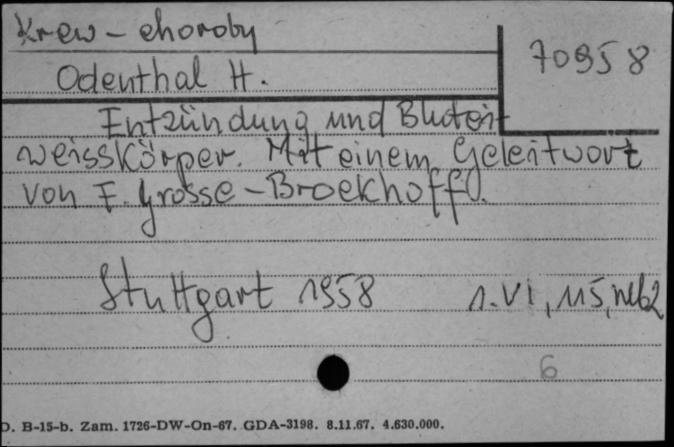 Krew - choroby
70958
Odenthal H.
Entzündung und Bluteit
weisskörper. Mit einem Geleitwort
von F. Grosse-Broekhoff.
Stuttgart 1958 s. VI, 115, nlb2
6
D. B-15-b. Zam. 1726-DW-On-67. GDA-3198. 8.11.67. 4.630.000.